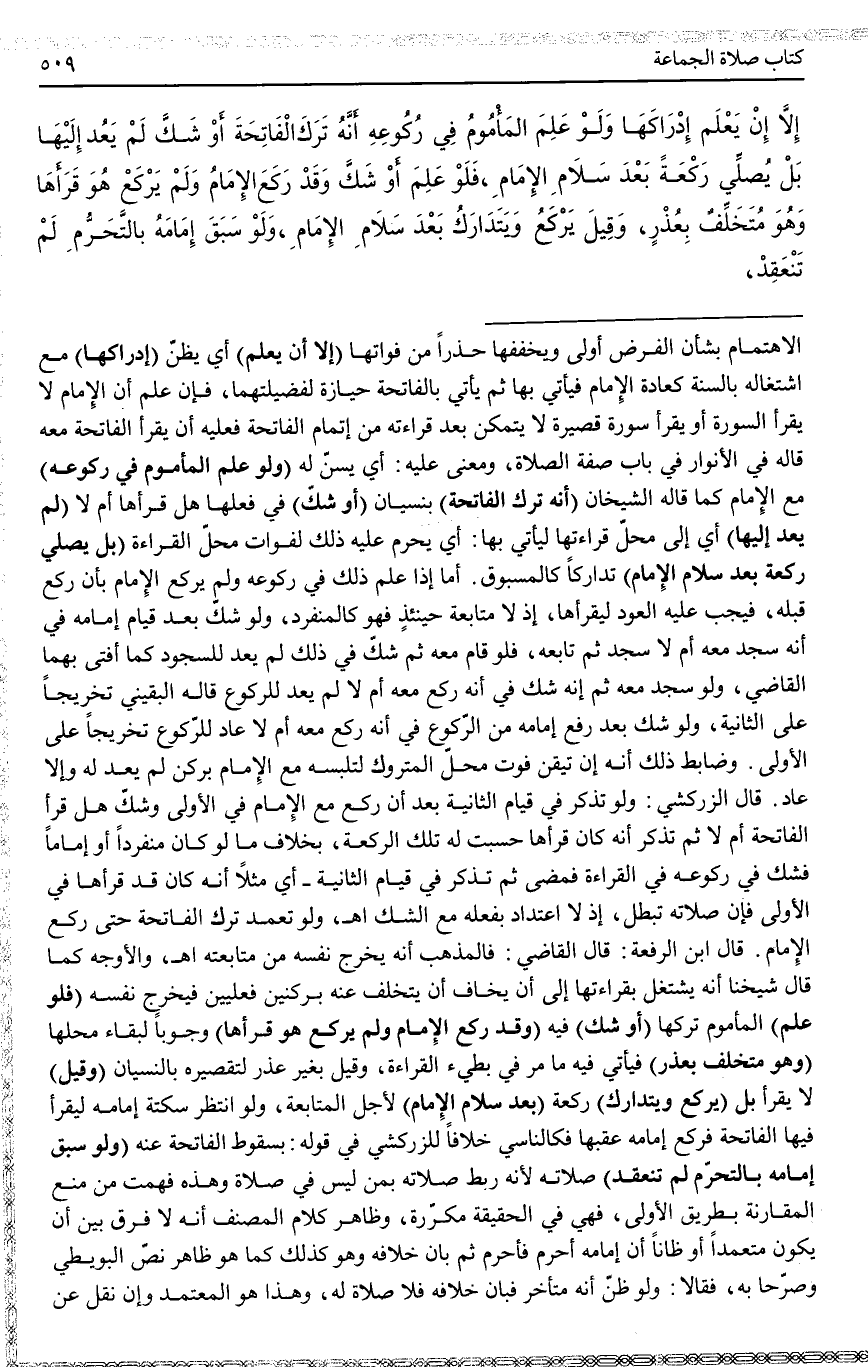 كتاب صلاة الجماعة
٥٠٩
إِلَّا إِنْ يَعْلَم إِدْرَاكَهَا وَلَوْ عَلِمَ المَأْمُومُ فِي رُكُوعِهِ أَنَّهُ تَرَكَ الْفَاتِحَةَ أَوْ شَكَّ لَمْ يَعُد إِلَيْهَا
بَلْ يُصَلِّي رَكْعَةً بَعْدَ سَلَامِ الإِمَامِ، فَلَوْ عَلِمَ أَوْ شَكَّ وَقَدْ رَكَعَ الإِمَامُ وَلَمْ يَرْكَعْ هُوَ قَرَأَهَا
وَهُوَ مُتَخَلِّفٌ بِعُذْرٍ، وَقِيلَ يَرْكَعُ وَيَتَدَارَكُ بَعْدَ سَلَامِ الإِمَامِ، وَلَوْ سَبَقَ إِمَامَهُ بالتَّحَرُّمِ لَمْ
تَنْعَقِدْ،
الاهتمام بشأن الفرض أولى ويخففها حذراً من فواتها (إلا أن يعلم) أي يظنّ (إدراكها) مع
اشتغاله بالسنة كعادة الإمام فيأتي بها ثم يأتي بالفاتحة حيازة لفضيلتهما، فإن علم أن الإمام لا
يقرأ السورة أو يقرأ سورة قصيرة لا يتمكن بعد قراءته من إتمام الفاتحة فعليه أن يقرأ الفاتحة معه
قاله في الأنوار في باب صفة الصلاة، ومعنى عليه: أي يسنّ له (ولو علم المأموم في ركوعه)
مع الإمام كما قاله الشيخان (أنه ترك الفاتحة) بنسيان (أو شكّ) في فعلها هل قرأها أم لا (لم
يعد إليها) أي إلى محلّ قراءتها ليأتي بها: أي يحرم عليه ذلك لفوات محلّ القراءة (بل يصلي
ركعة بعد سلام الإمام) تداركاً كالمسبوق. أما إذا علم ذلك في ركوعه ولم يركع الإمام بأن ركع
قبله، فيجب عليه العود ليقرأها، إذ لا متابعة حينئذٍ فهو كالمنفرد، ولو شكّ بعد قيام إمامه في
أنه سجد معه أم لا سجد ثم تابعه، فلو قام معه ثم شكّ في ذلك لم يعد للسجود كما أفتى بهما
القاضي، ولو سجد معه ثم إنه شك في أنه ركع معه أم لا لم يعد للركوع قاله البقيني تخريجاً
على الثانية، ولو شك بعد رفع إمامه من الرّكوع في أنه ركع معه أم لا عاد للرّكوع تخريجاً على
الأولى. وضابط ذلك أنه إن تيقن فوت محلّ المتروك لتلبسه مع الإمام بركن لم يعد له وإلا
عاد. قال الزركشي: ولو تذكر في قيام الثانية بعد أن ركع مع الإمام في الأولى وشكّ هل قرأ
الفاتحة أم لا ثم تذكر أنه كان قرأها حسبت له تلك الركعة، بخلاف ما لو كان منفرداً أو إماماً
فشك في ركوعه في القراءة فمضى ثم تذكر في قيام الثانية - أي مثلًا أنه كان قد قرأها في
الأولى فإن صلاته تبطل، إذ لا اعتداد بفعله مع الشك اهـ، ولو تعمد ترك الفاتحة حتى ركع
الإمام. قال ابن الرفعة: قال القاضي: فالمذهب أنه يخرج نفسه من متابعته اهـ، والأوجه كما
قال شيخنا أنه يشتغل بقراءتها إلى أن يخاف أن يتخلف عنه بركنين فعليين فيخرج نفسه (فلو
علم) المأموم تركها (أو شك) فيه (وقد ركع الإمام ولم يركع هو قرأها) وجوباً لبقاء محلها
(وهو متخلف بعذر) فيأتي فيه ما مر في بطيء القراءة، وقيل بغير عذر لتقصيره بالنسيان (وقيل)
لا يقرأ بل (يركع ويتدارك) ركعة (بعد سلام الإمام) لأجل المتابعة، ولو انتظر سكتة إمامه ليقرأ
فيها الفاتحة فركع إمامه عقبها فكالناسي خلافاً للزركشي في قوله: بسقوط الفاتحة عنه (ولو سبق
إمامه بالتحرّم لم تنعقد) صلاته لأنه ربط صلاته بمن ليس في صلاة وهذه فهمت من منع
المقارنة بطريق الأولى، فهي في الحقيقة مكرّرة، وظاهر كلام المصنف أنه لا فرق بين أن
يكون متعمداً أو ظاناً أن إمامه أحرم فأحرم ثم بان خلافه وهو كذلك كما هو ظاهر نصّ البويطي
وصرّحا به، فقالا: ولو ظنّ أنه متأخر فبان خلافه فلا صلاة له، وهذا هو المعتمد وإن نقل عن